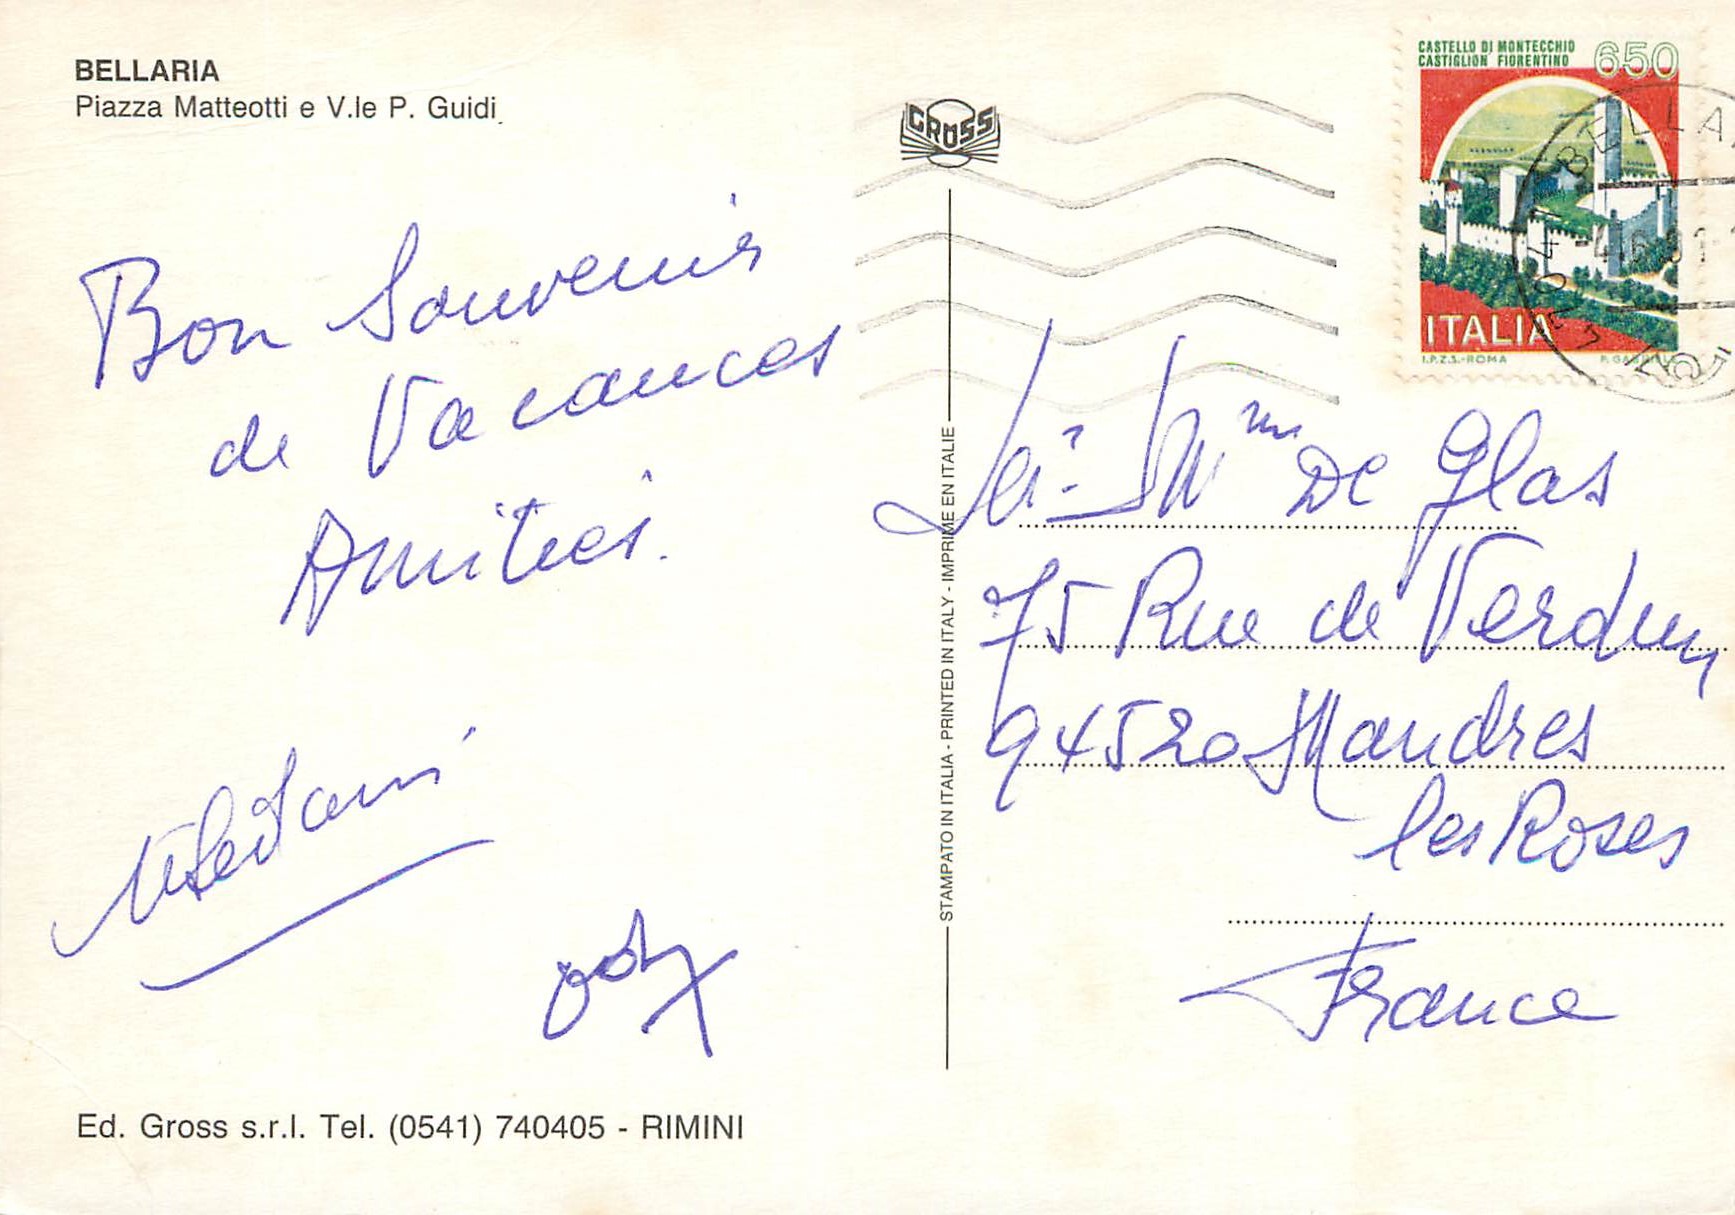 BELLARIA
Piazza Matteotti e V.le P. Guidi
Bon Souvenir
de Vacances
Amitiés.
Ed. Gross s.r.l. Tel. (0541) 740405 - RIMINI
GROSS
STAMPATO IN ITALIA - PRINTED IN ITALY - IMPRIME EN ITALIE
CASTELLO DI MONTECCHIO
CASTIGLION FIORENTINO
650
ITALIA
I.P.Z.S.-ROMA
BELLA
Mme De Glas
75 Rue de Verdun
94520 Mandres
les Roses
France